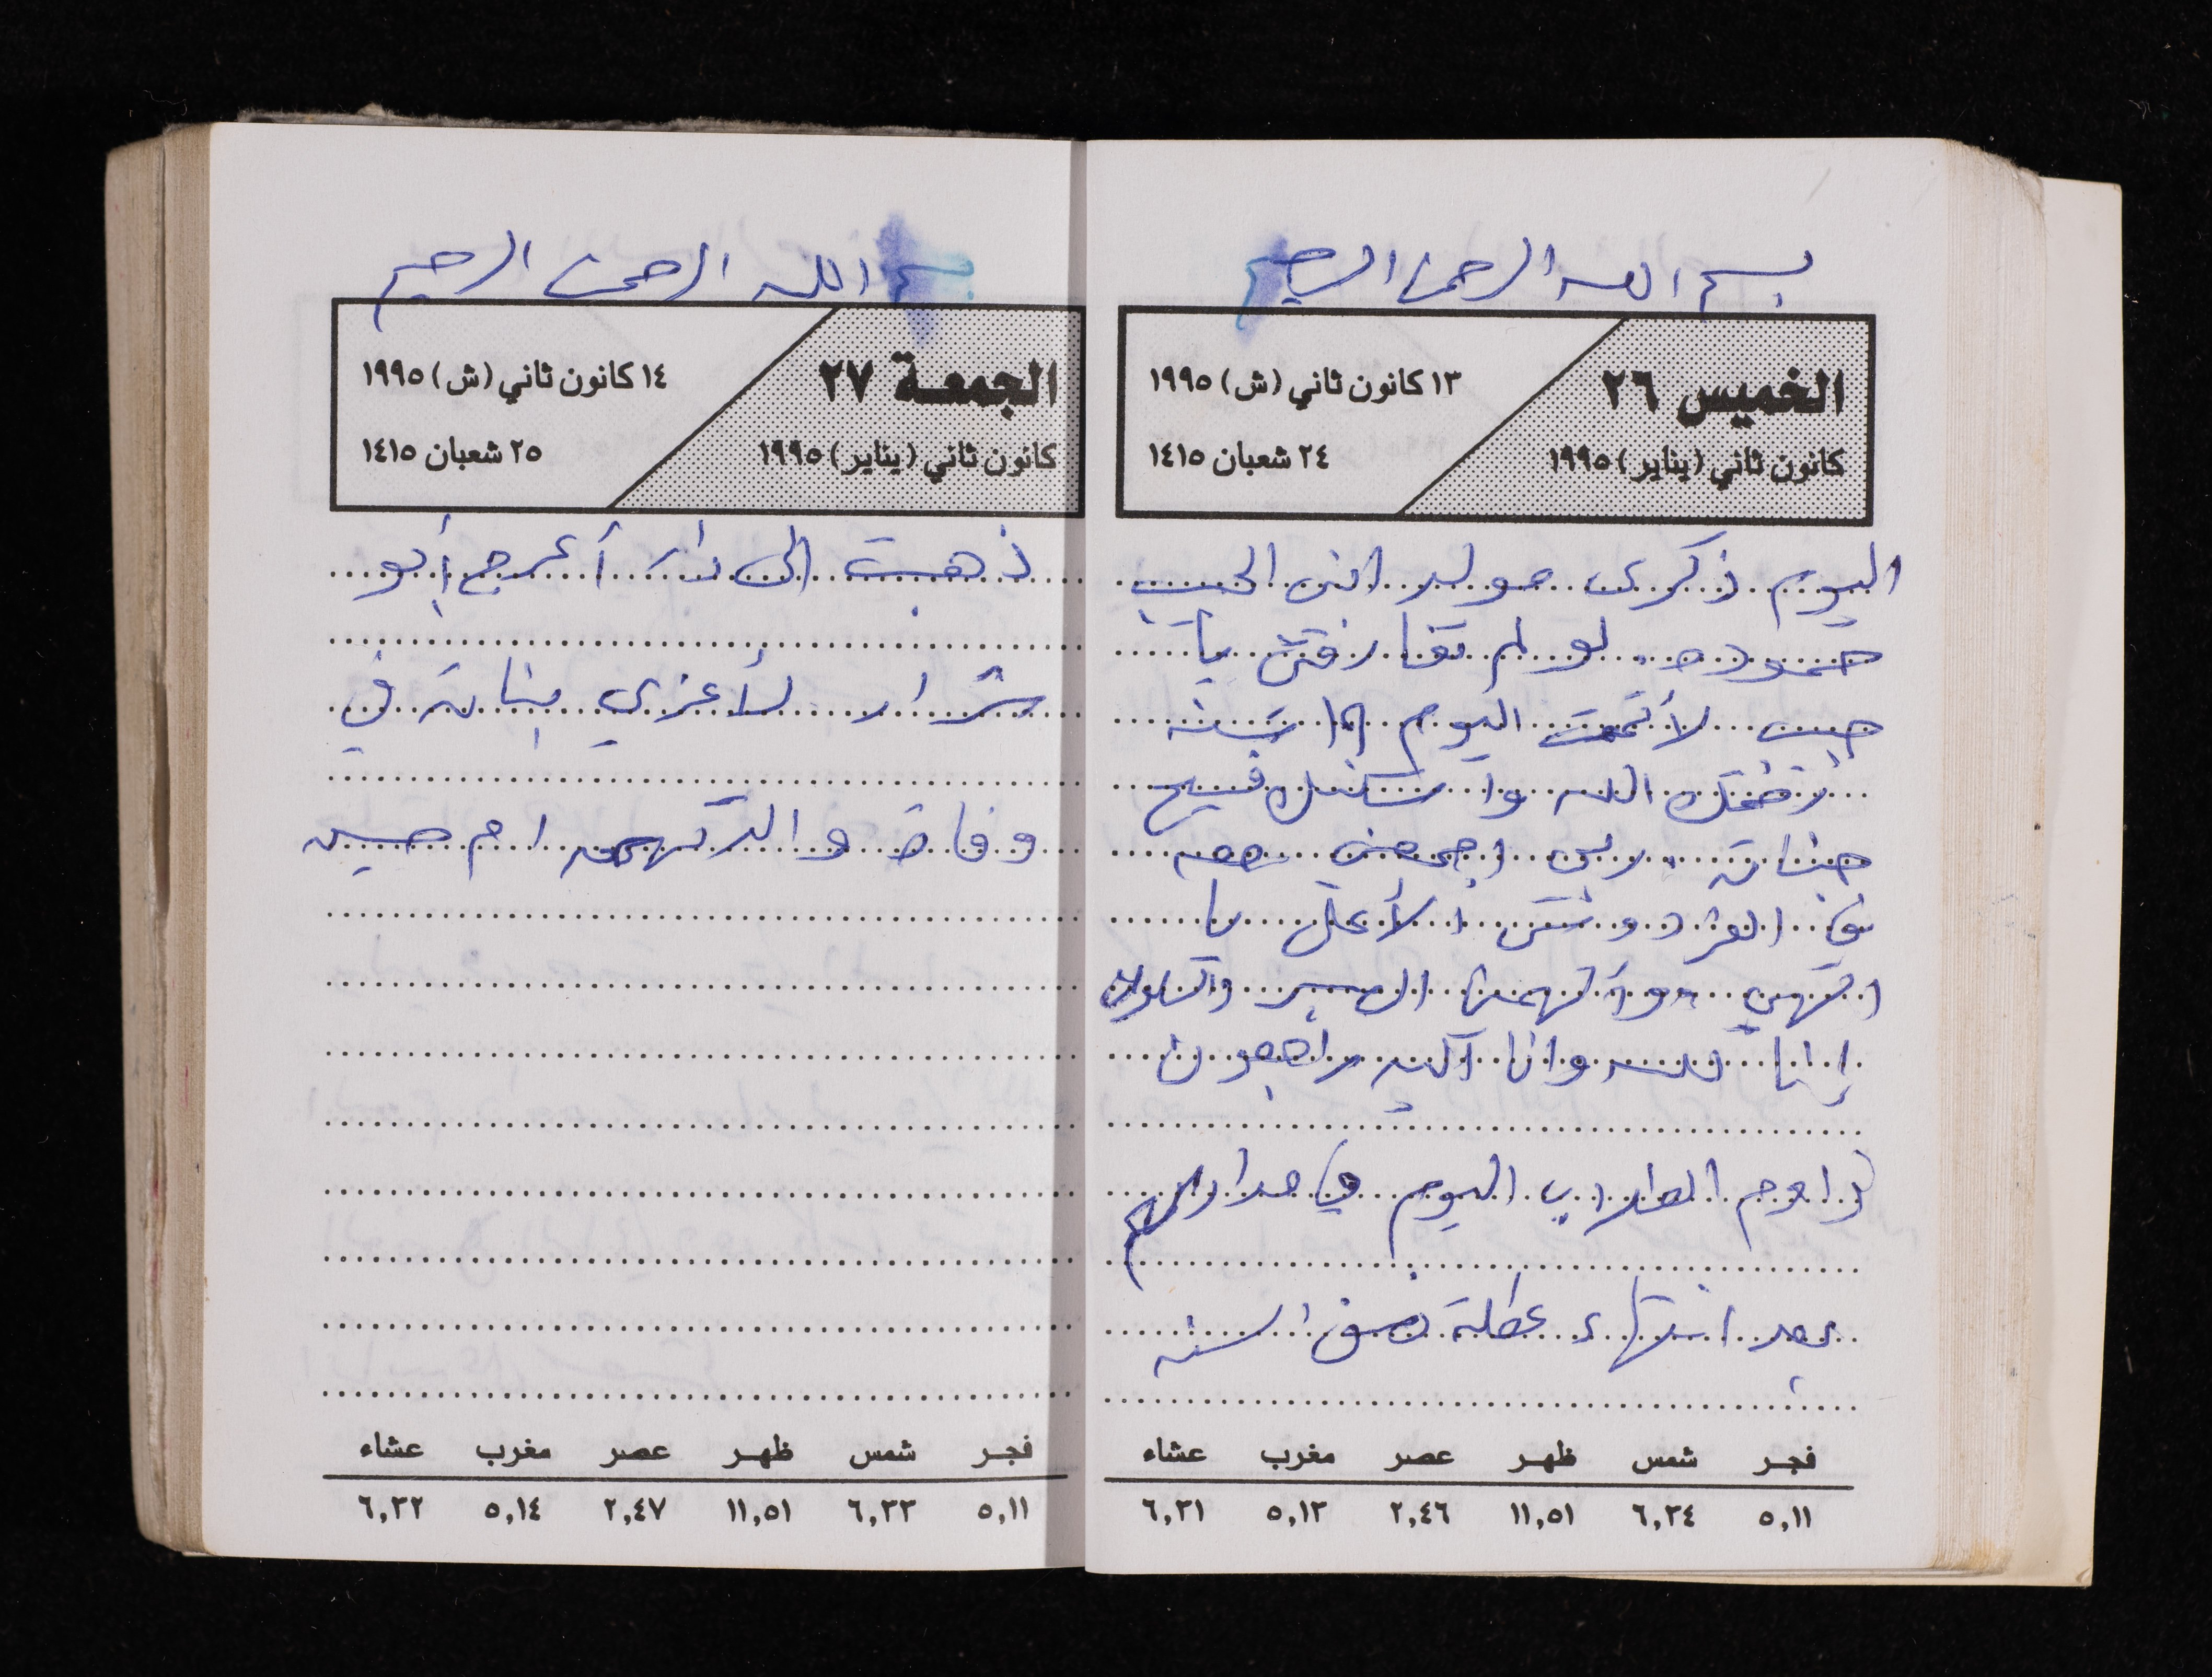 بسم الله الرحمن الرحيم
الخميس ٢٦
كانون ثاني (يناير) ١٩٩٥
١٣ كانون ثاني (ش) ١٩٩٥
٢٤ شعبان ١٤١٥
اليوم ذكرى مولد ابني الحبيب
حموده. لو لم تفارقني يا
حبيبي لأتممت اليوم ١٩ سنه
رحمك الله واسكنك فسيح
جناته. ربي اجمعني معه
في الفردوس الأعلى يا
الهي وألهمني الصبر والسلوان
إنا لله وانا اليه راجعون
داوم الطلاب اليوم في مدارسهم
بعد انتهاء عطلة نصف السنه
فجر شمس ظهر عصر مغرب عشاء
٥,١١ ٦,٣٤ ١١,٥١ ٢,٤٦ ٥,١٣ ٦,٣١
بسم الله الرحمن الرحيم
الجمعة ٢٧
كانون ثاني (يناير) ١٩٩٥
١٤ كانون ثاني (ش) ١٩٩٥
٢٥ شعبان ١٤١٥
ذهبت الى دار أعرج أبو
شرار لأعزي بناته في
وفاة والدتهم ام حسين
فجر شمس ظهر عصر مغرب عشاء
٥,١١ ٦,٣٣ ١١,٥١ ٢,٤٧ ٥,١٤ ٦,٣٢